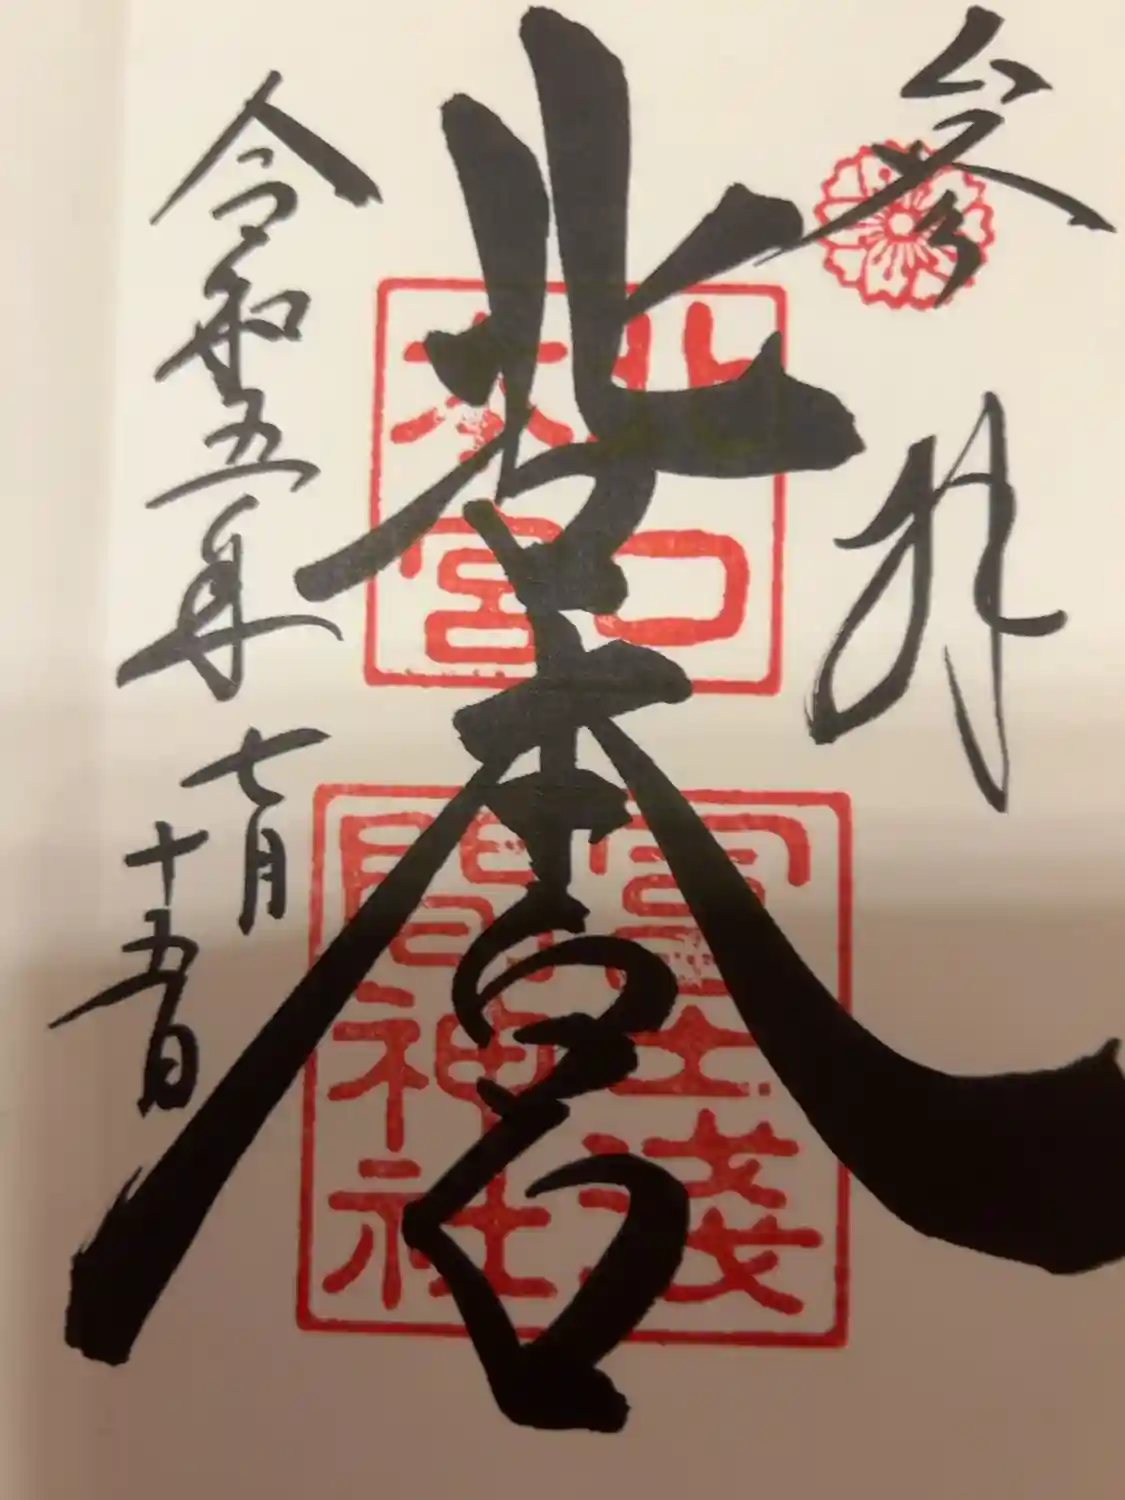 参拝
北口本宮
北口
本宮
冨士淺
間神社
令和五年七月十五日